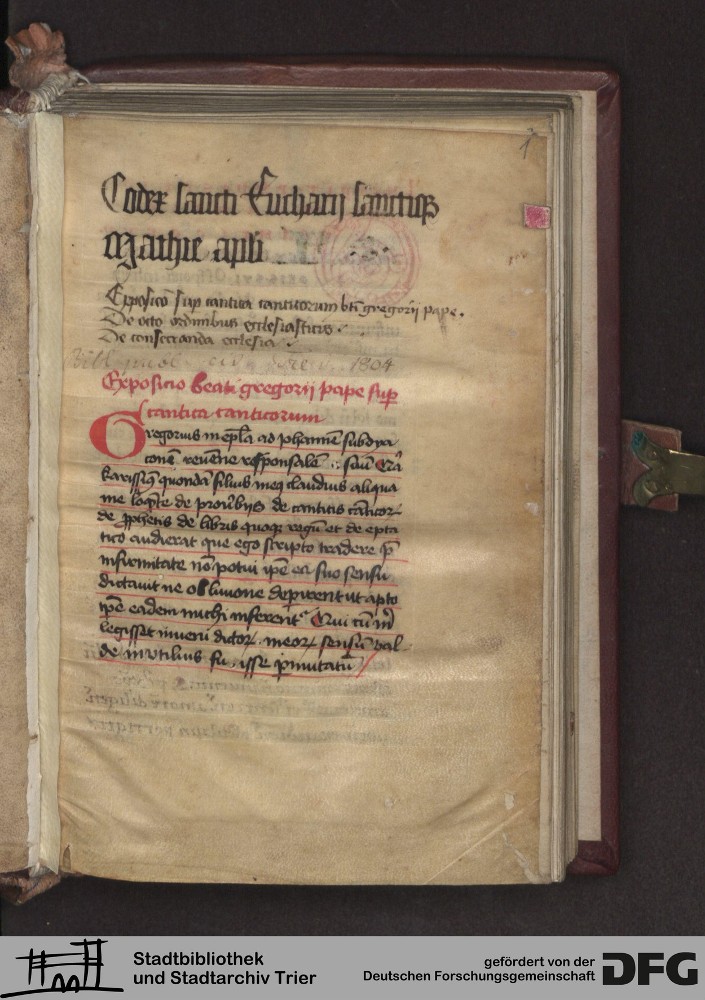 1
Codex sancti Eucharij sanctiq3
Mathie apli
Exposico sup cantica canticorum bti gregorij pape.
De octo ordinibus ecclesiasticis.
De consecranda ecclesia
1804
Exposicio beati gregorij pape sup
cantica canticorum
Gregorius in epla ad Johannē subdya
conē rauēne responsalē
Karissimꝰ quondā filius meꝰ claudius aliqua
me loq̄nte de prouerbijs de canticis cāticorꝝ
de ꝓphetis de libris quoqꝫ regū et de epta
tico audierat que ego scripto tradere p̄
infirmitate nō potui ipē ea suo sensu
dictauit ne obliuione deperirent ut apto
ipē eadem michi inferent Qui cū m̄
legisset inueni dictorꝝ meorꝝ sensū val
de inutilius fu isse ꝑmutatū
Stadtbibliothek
und Stadtarchiv Trier
gefördert von der
Deutschen Forschungsgemeinschaft
DFG